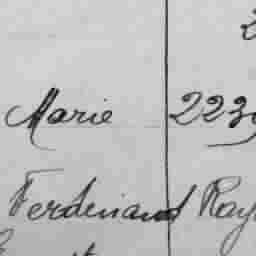 Marie 223
Ferdinand Ray